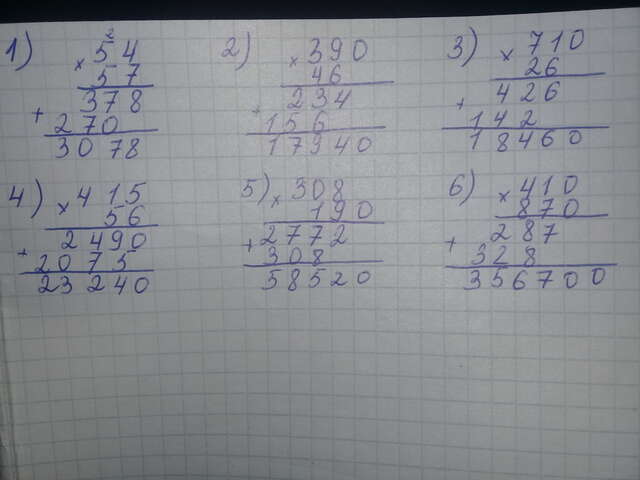 1) 2
× 54
57
378
+ 270
3078
2) × 390
46
+ 234
156
17940
3) × 710
26
+ 426
142
18460
4) × 415
56
+ 2490
2075
23240
5) × 308
190
+ 2772
308
58520
6) × 410
870
+ 287
328
356700